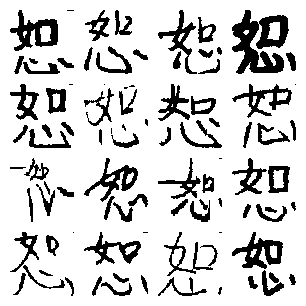 恕恕恕恕
恕恕恕恕
恕恕恕恕
恕恕恕恕